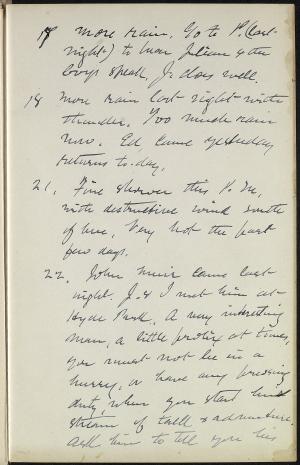 17 more rain. Go to P. (last
night) to hear Julian & the
boys speak, J. does well.
18 more rain last night with
thunder. Too much rain
now. Ed. came yesterday
returns to-day.
21. Fine shower this P.M.,
with destructive wind south
of here. Very hot the past
few days.
22. John Muir came last
night. J. & I met him at
Hyde Park. A very interesting
man, a little prolix at times,
you must not be in a
hurry, or have any pressing
duty, when you start his
stream of talk & adventure.
Ask him to tell you his